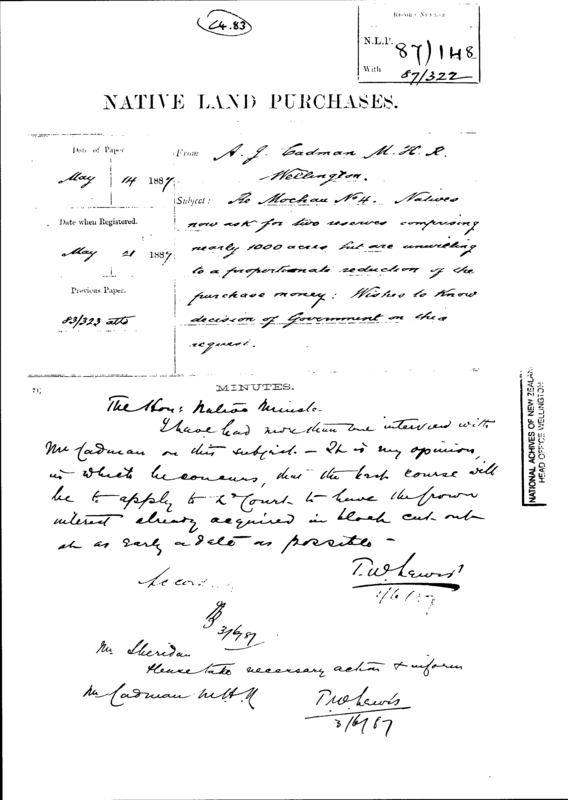 C4.83
RECORD NUMBER
N.L.P. 87/148
With 87/322
NATIVE LAND PURCHASES.
Date of Paper
May 14 1887
Date when Registered.
May 21 1887
Previous Paper.
83/323 atts
From A. J. Cadman M. H. R.
Wellington.
Subject: Re Moehau No 4. Natives
now ask for two reserves comprising
nearly 1000 acres but are unwilling
to a proportionate reduction of the
purchase money: Wishes to know
decision of Government on this
request.
MINUTES.
The Hon: Native Minister
I have had more than one interview with
Mr Cadman on this subject. – It is my opinion,
in which he concurs, that the best course will
be to apply to Ld Court to have the Crown
interest already acquired in block cut out
at as early a date as possible –
T.W. Lewis
1/6/87
3/6/87
Mr Sheridan
Please take necessary action & inform
Mr Cadman M.H.R
T.W. Lewis
3/6/87
NATIONAL ARCHIVES OF NEW ZEALAND
HEAD OFFICE WELLINGTON